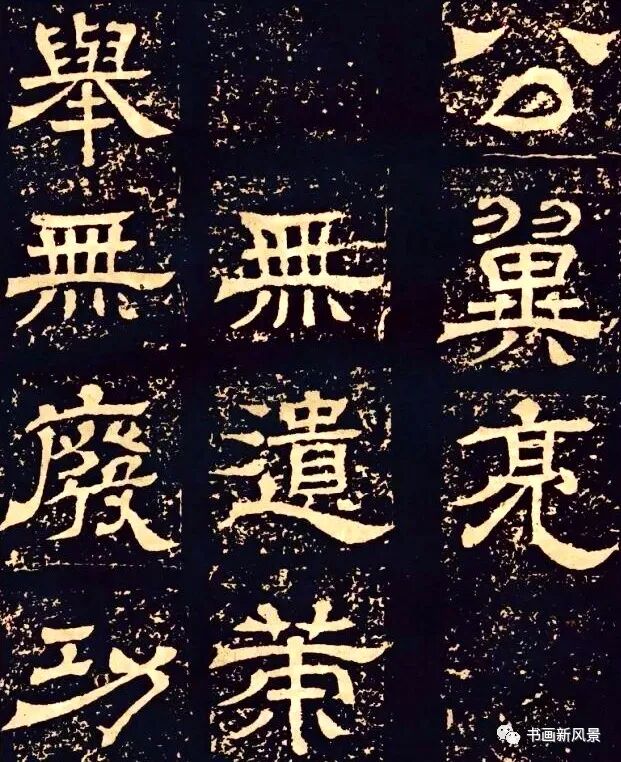 公翼亮
無遺策
舉無廢功
书画新风景